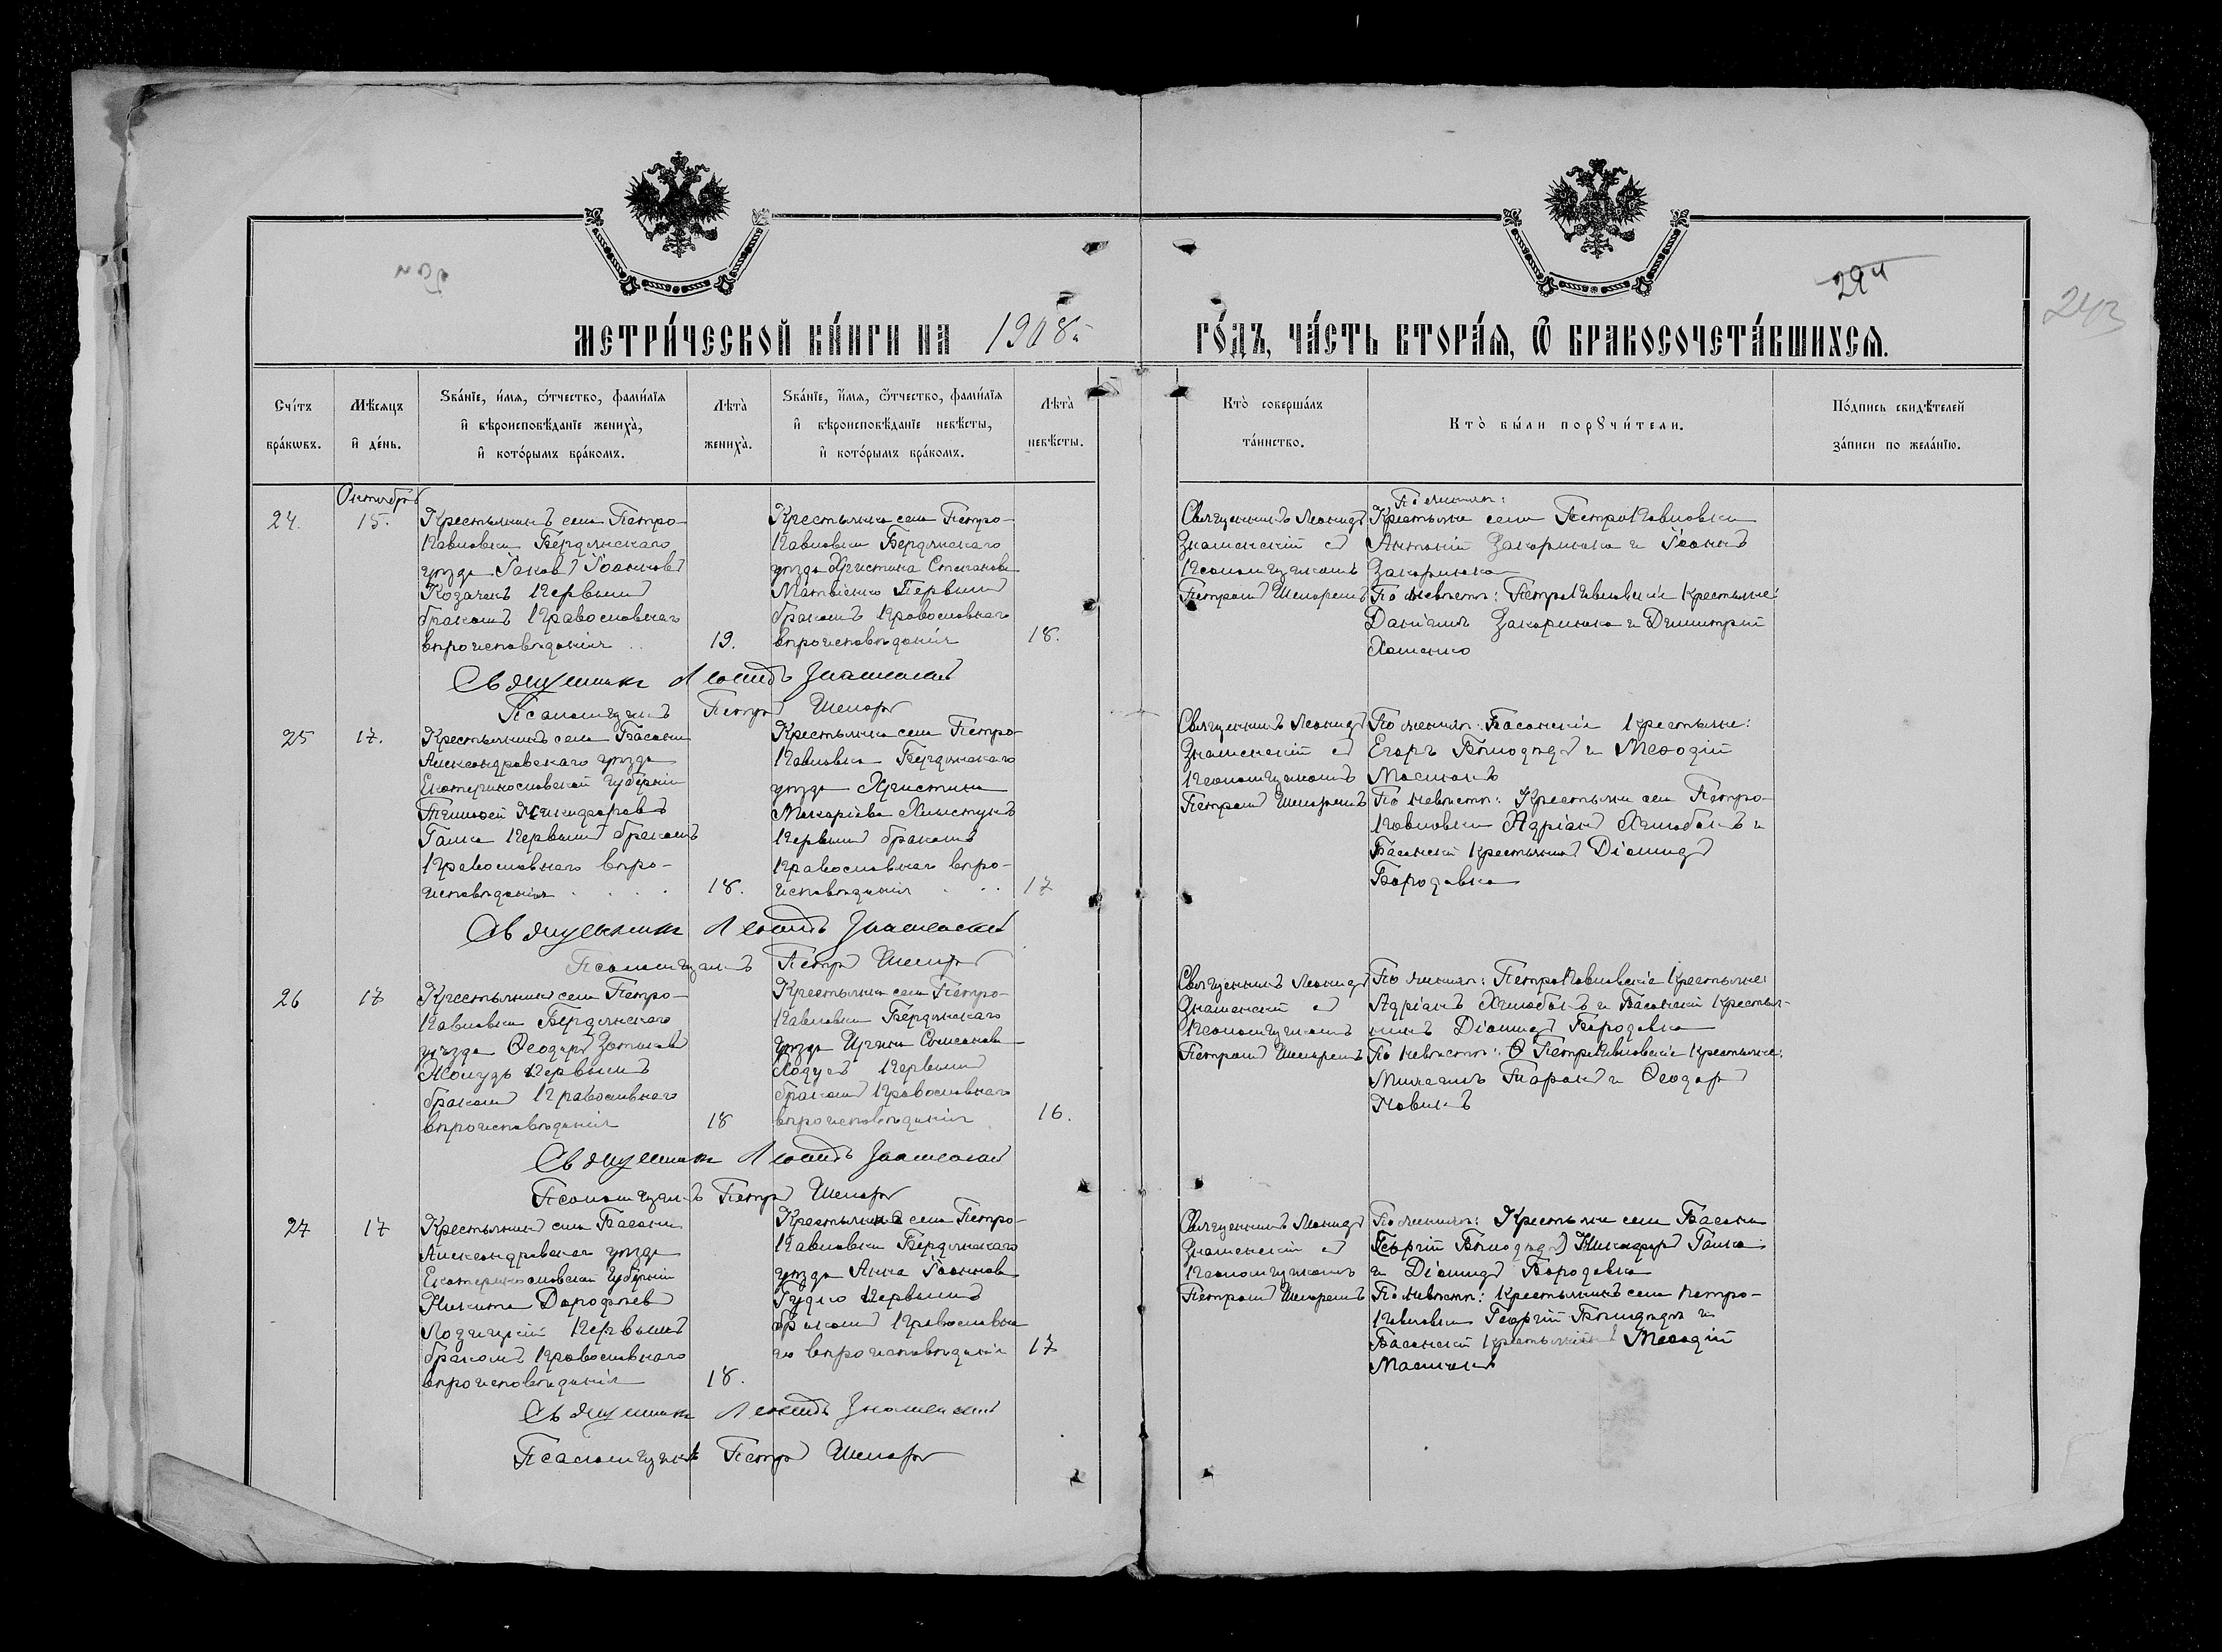 29 и
243
МЕТРИ́ЧЕСКОЙ КНИ́ГИ НА 1908й ГО́ДЪ, ЧА́СТЬ ВТОРА́Я, Ѿ БРАКОСОЧЕТА́ВШИХСЯ.
Сче́тъ бра́кѡвъ.
Мѣ́сяцъ и҆ де́нь.
Ѕва́нїе, и҆́мя, ѻ҆́тчество, фами́лїя
и҆ вѣроисповѣ́данїе жениха̀,
и҆ кото́рымъ бра́комъ.
Лѣта̀ жениха̀.
Ѕва́нїе, и҆́мя, ѻ҆́тчество, фами́лїя
и҆ вѣроисповѣ́данїе невѣ́сты,
и҆ кото́рымъ бра́комъ.
Лѣта̀ невѣ́сты.
Кто̀ соверша́лъ
та́инство.
Кто̀ бы́ли порꙋчи́тели.
По́дпись свидѣ́телей
за́писи по жела́нїю.
Октября
24. 15.
Крестьянинъ села Петро-
Павловки Бердянскаго
уѣзда Іаковъ Іоанновъ
Козаченъ первымъ
бракомъ Православнаго
вѣроисповѣданія
19.
Крестьянка села Петро-
Павловки Бердянскаго
уѣзда Христина Стеганова
Матвіенко Первымъ
бракомъ Православнаго
вѣроисповѣданія
18.
Священникъ Леонидъ
Знаменскій съ
Псаломщикомъ
Петромъ Шепаремъ
По женихѣ:
Крестьяне села ПетроПавловки
Антоній Закарлюка и Іоаннъ
Закарлюка
По невѣстѣ: ПетроПавловскіе крестьяне:
Даніилъ Закарлюка и Димитрій
Хоменко
Священникъ Леонидъ Знаменскій
Псаломщикъ Петръ Шепарь
25 17.
Крестьянинъ села Басани
Александровскаго уѣзда
Екатеринославской губерніи
Тимоѳей Никифоровъ
Галка первымъ бракомъ
Православнаго вѣро-
исповѣданія
18.
Крестьянка села Петро-
Павловки Бердянскаго
уѣзда Христина
Макаріева Хлыстунъ
первымъ бракомъ
Православнаго вѣро-
исповѣданія
17
Священникъ Леонидъ
Знаменскій съ
Псаломщикомъ
Петромъ Шепаремъ
По женихѣ: Басанскіе крестьяне:
Егоръ Бѣлодѣдъ и Меѳодій
Маслюкъ
По невѣстѣ: Крестьяне села Петро-
Павловки Адріанъ Хлюбакъ и
Басанскій крестьянинъ Діомидъ
Бородавка
Священникъ Леонидъ Знаменскій
Псаломщикъ Петръ Шепарь
26 17
Крестьянинъ села Петро-
Павловки Бердянскаго
уѣзда Ѳеодоръ
первымъ
бракомъ Православнаго
вѣроисповѣданія
18
Крестьянка села Петро-
Павловки Бердянскаго
уѣзда Ирина
первымъ
бракомъ Православнаго
вѣроисповѣданія
16.
Священникъ Леонидъ
Знаменскій съ
Псаломщикомъ
Петромъ Шепаремъ
По женихѣ: ПетроПавловскіе крестьяне:
Адріанъ Хлюбакъ и Басанскій крестья-
нинъ Діомидъ Бородавка
По невѣстѣ: ПетроПавловскіе крестьяне:
Михаилъ Таранъ и Ѳеодоръ
Новикъ
Священникъ Леонидъ Знаменскій
Псаломщикъ Петръ Шепарь
27 17
Крестьянинъ села Басани
Александровскаго уѣзда
Екатеринославской губерніи
Никита Дорофѣевъ
Лозицкій первымъ
бракомъ православнаго
вѣроисповѣданія
18.
Крестьянка села Петро-
Павловки Бердянскаго
уѣзда Анна Іоаннова
Гудко первымъ
бракомъ православна
го вѣроисповѣданія
17
Священникъ Леонидъ
Знаменскій съ
Псаломщикомъ
Петромъ Шепаремъ
По женихѣ: Крестьяне села Басани
Георгій Бѣлодѣдъ, Никифоръ Галка
и Діомидъ Бородавка
По невѣстѣ: крестьянинъ села Петро-
Павловки Георгій Бѣлодѣдъ и
Басанскій крестьянинъ Меѳодій
Маслюкъ
Священникъ Леонидъ Знаменскій
Псаломщикъ Петръ Шепарь